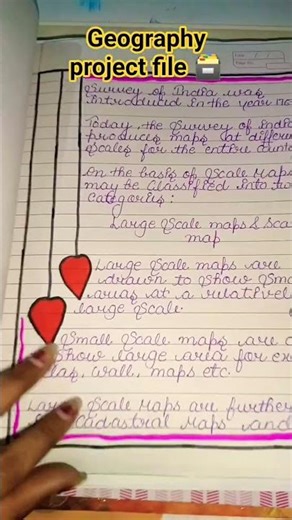 Geography
project file 🗃️
Survey of India was
introduced in the year
Today, the Survey of India
produces maps at
scales for the entire
On the basis of Scale Maps
may be Classified into
Categories:
Large Scale maps &
map
Large Scale maps are
drawn to show
areas at a
large Scale.
Small Scale maps are
show large area for
wall, maps etc.
Scale Maps are further
Cadastral Maps and